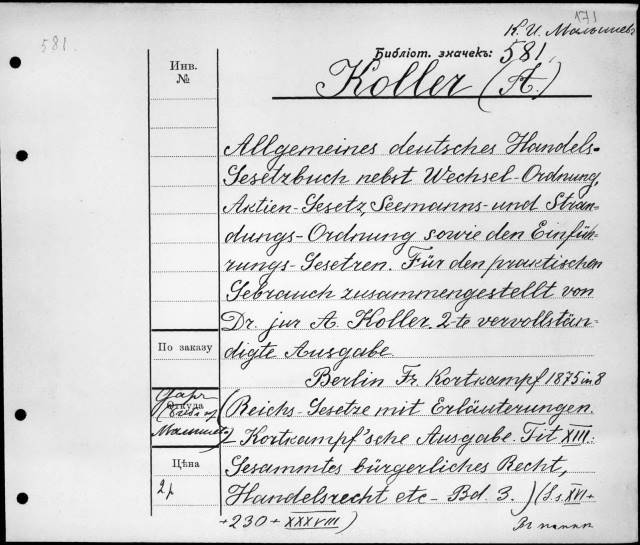 171
К. И. Малышевъ
581.
Библіот. значекъ: 581,
Инв.
№
Koller (A.)
Allgemeines deutsches Handels-
Gesetzbuch nebst Wechsel-Ordnung,
Aktien-Gesetz, Seemanns- und Stran-
dungs-Ordnung sowie den Einfüh-
rungs-Gesetzen. Für den praktischen
Gebrauch zusammengestellt von
Dr. jur A. Koller. 2-te vervollstän-
digte Ausgabe.
По заказу
Berlin Fr. Kortkampf 1875 in 8
Откуда
Малышевъ
(Reichs-Gesetze mit Erläuterungen.
Kortkampf'sche Ausgabe. Tit XIII:
Цѣна
Gesammtes bürgerliches Recht,
2 р
Handelsrecht etc - Bd. 3.) (S.s. XVI +
+ 230 + XXXVIII)